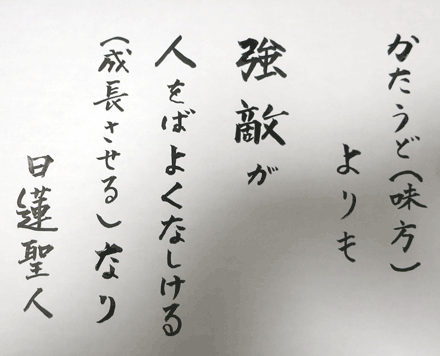 かたうど(味方)
よりも
強敵が
人をばよくなしける
(成長させる)なり
日蓮聖人